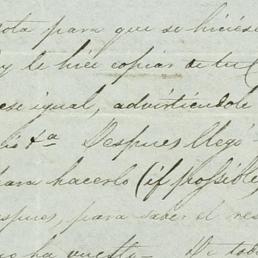 ota para que se hiciese
y le hice copiar de tu
ese igual, advirtiendole
Despues llegó
para hacerlo (if possible
espues, para saber el res
no ha vuelto. De tod